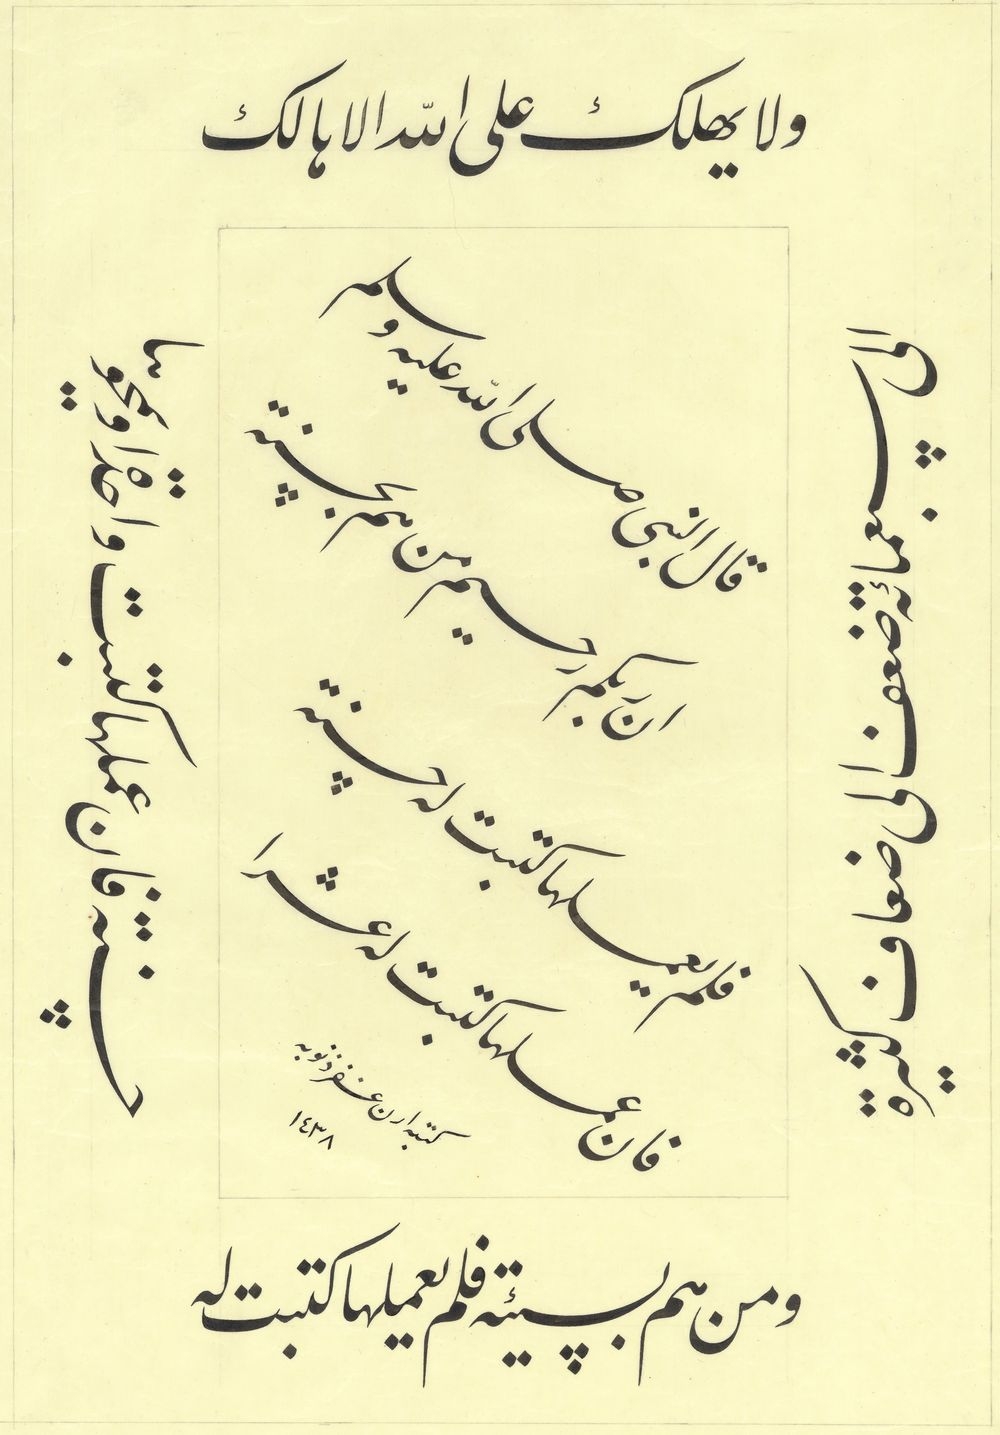 قال النبى صلى الله عليه وسلم
ان ربكم رحيم من هم بحسنة
فلم يعملها كتبت له حسنة
فان عملها كتبت له عشرا
الى سبعمائة ضعف الى ضعاف كثيرة
ومن هم بسيئة فلم يعملها كتبت له
حسنة فان عملها كتبت واحدة او يمحوها
ولا يهلك على الله الا هالك
كتبه ارن غفر ذنوبه
١٤٣٨